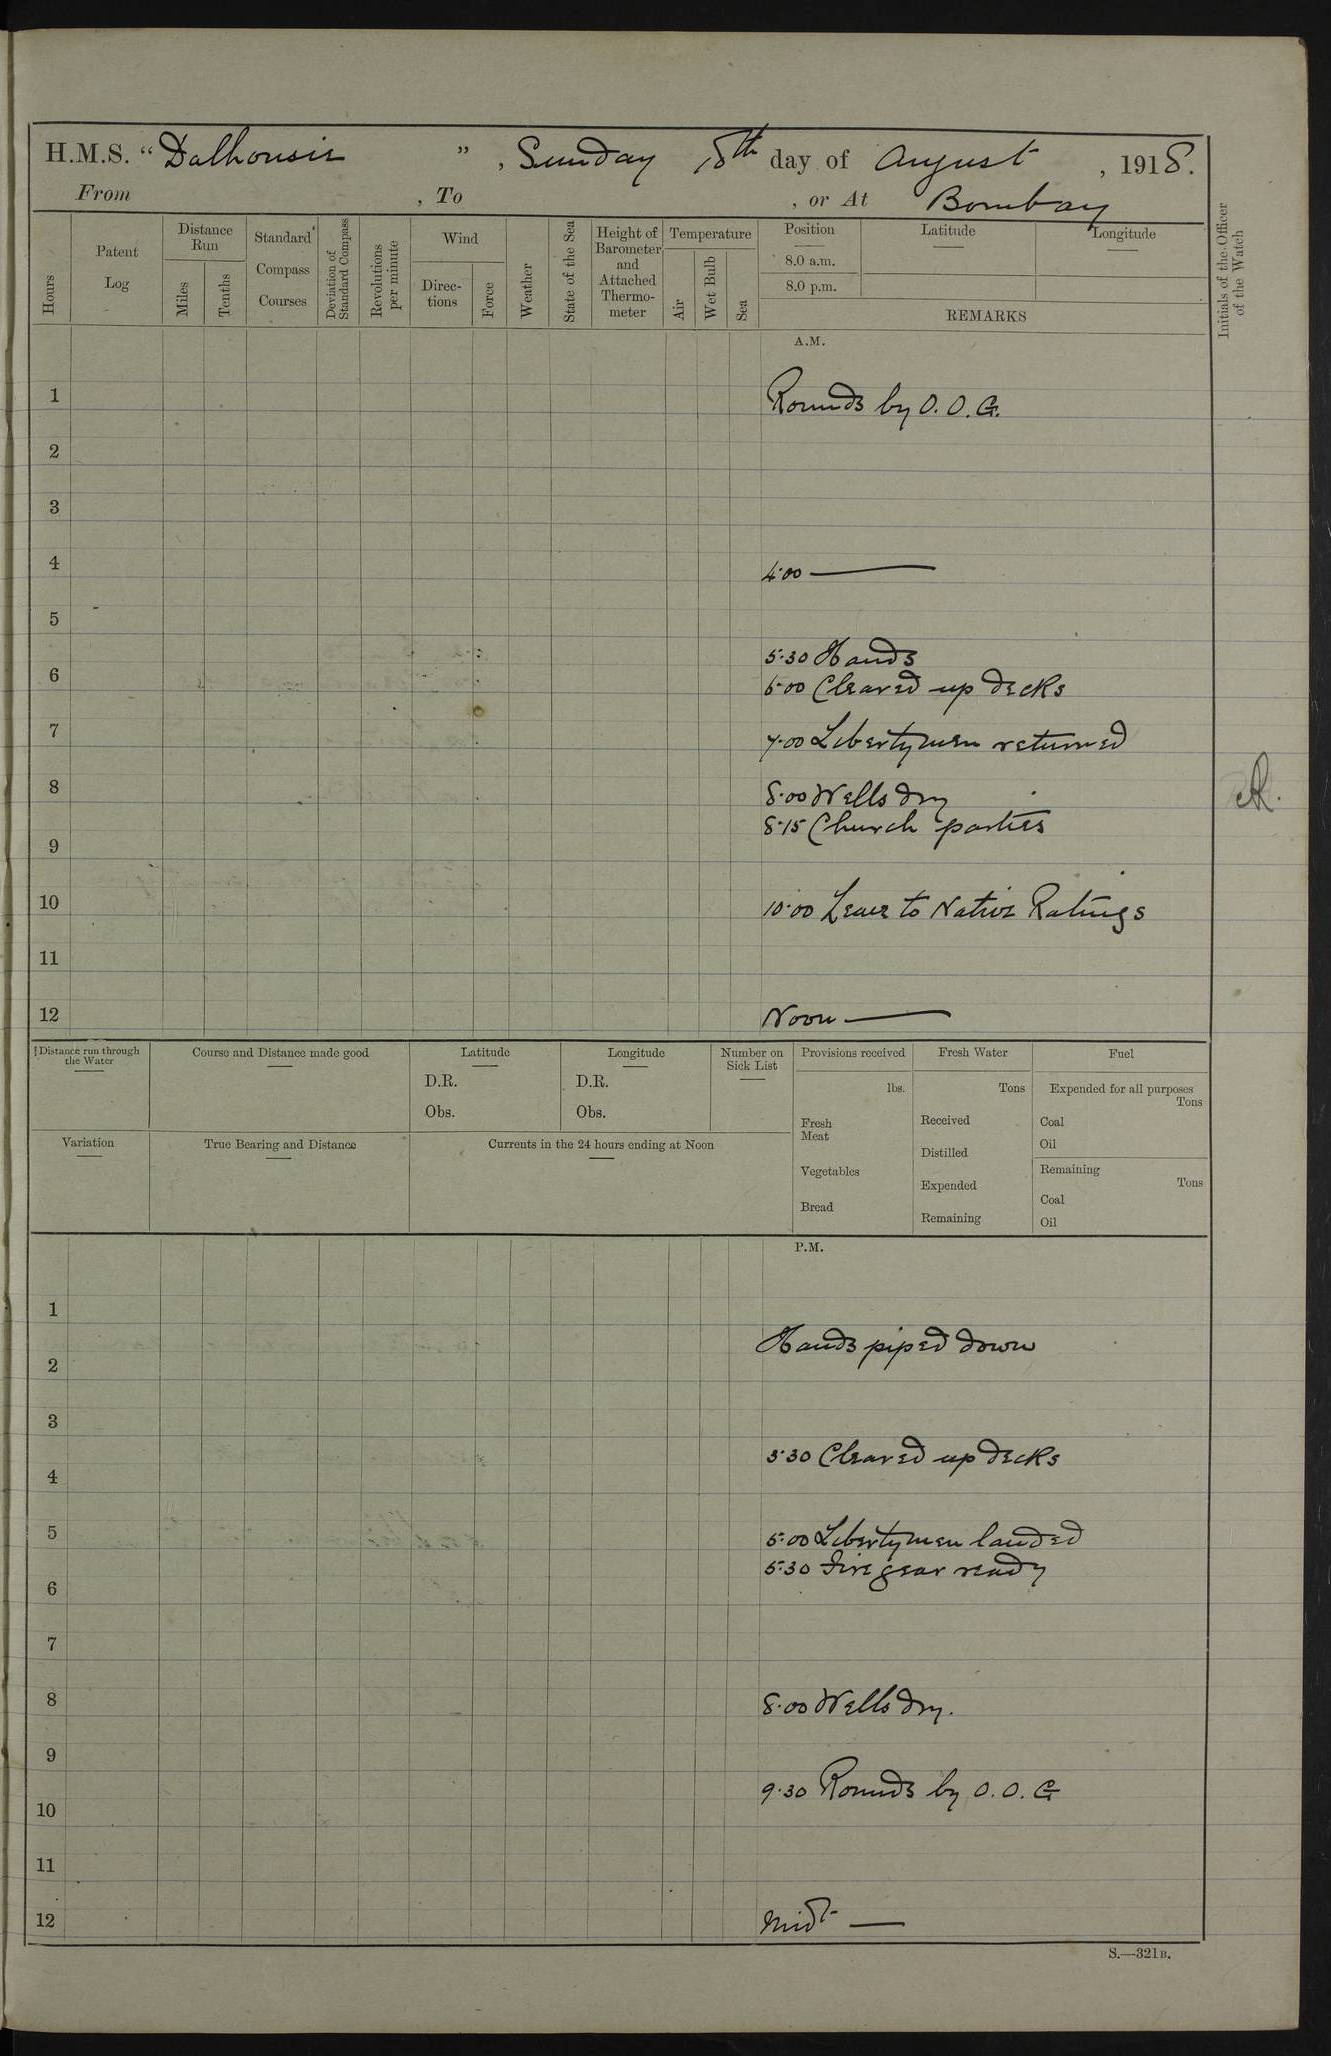 H.M.S. “ Dalhousie ” , Sunday 18th day of August , 1918.
From , To , or At Bombay
Hours
Patent Log
Distance Run
Miles
Tenths
Standard Compass Courses
Deviation of Standard Compass
Revolutions per minute
Wind
Directions
Force
Weather
State of the Sea
Height of Barometer and Attached Thermometer
Temperature
Air
Wet Bulb
Sea
Position
8.0 a.m.
8.0 p.m.
Latitude
Longitude
REMARKS
Initials of the Officer of the Watch
A.M.
1 Rounds by O.O.G.
2
3
4 4·00 ———
5
5·30 Hands
6 6·00 Cleared up decks
7 7·00 Libertymen returned
8 8·00 Wells dry
8·15 Church parties
9
10 10·00 Leave to Native Ratings
11
12 Noon ———
Distance run through the Water
Course and Distance made good
Latitude
D.R.
Obs.
Longitude
D.R.
Obs.
Number on Sick List
Provisions received
lbs.
Fresh Meat
Vegetables
Bread
Fresh Water
Tons
Received
Distilled
Expended
Remaining
Fuel
Expended for all purposes
Tons
Coal
Oil
Remaining
Tons
Coal
Oil
Variation
True Bearing and Distance
Currents in the 24 hours ending at Noon
P.M.
1
Hands piped down
2
3
3·30 Cleared up decks
4
5 5·00 Libertymen landed
5·30 Fire gear ready
6
7
8 8·00 Wells dry.
9
9·30 Rounds by O.O.G
10
11
12 Midt. —
S.—321B.